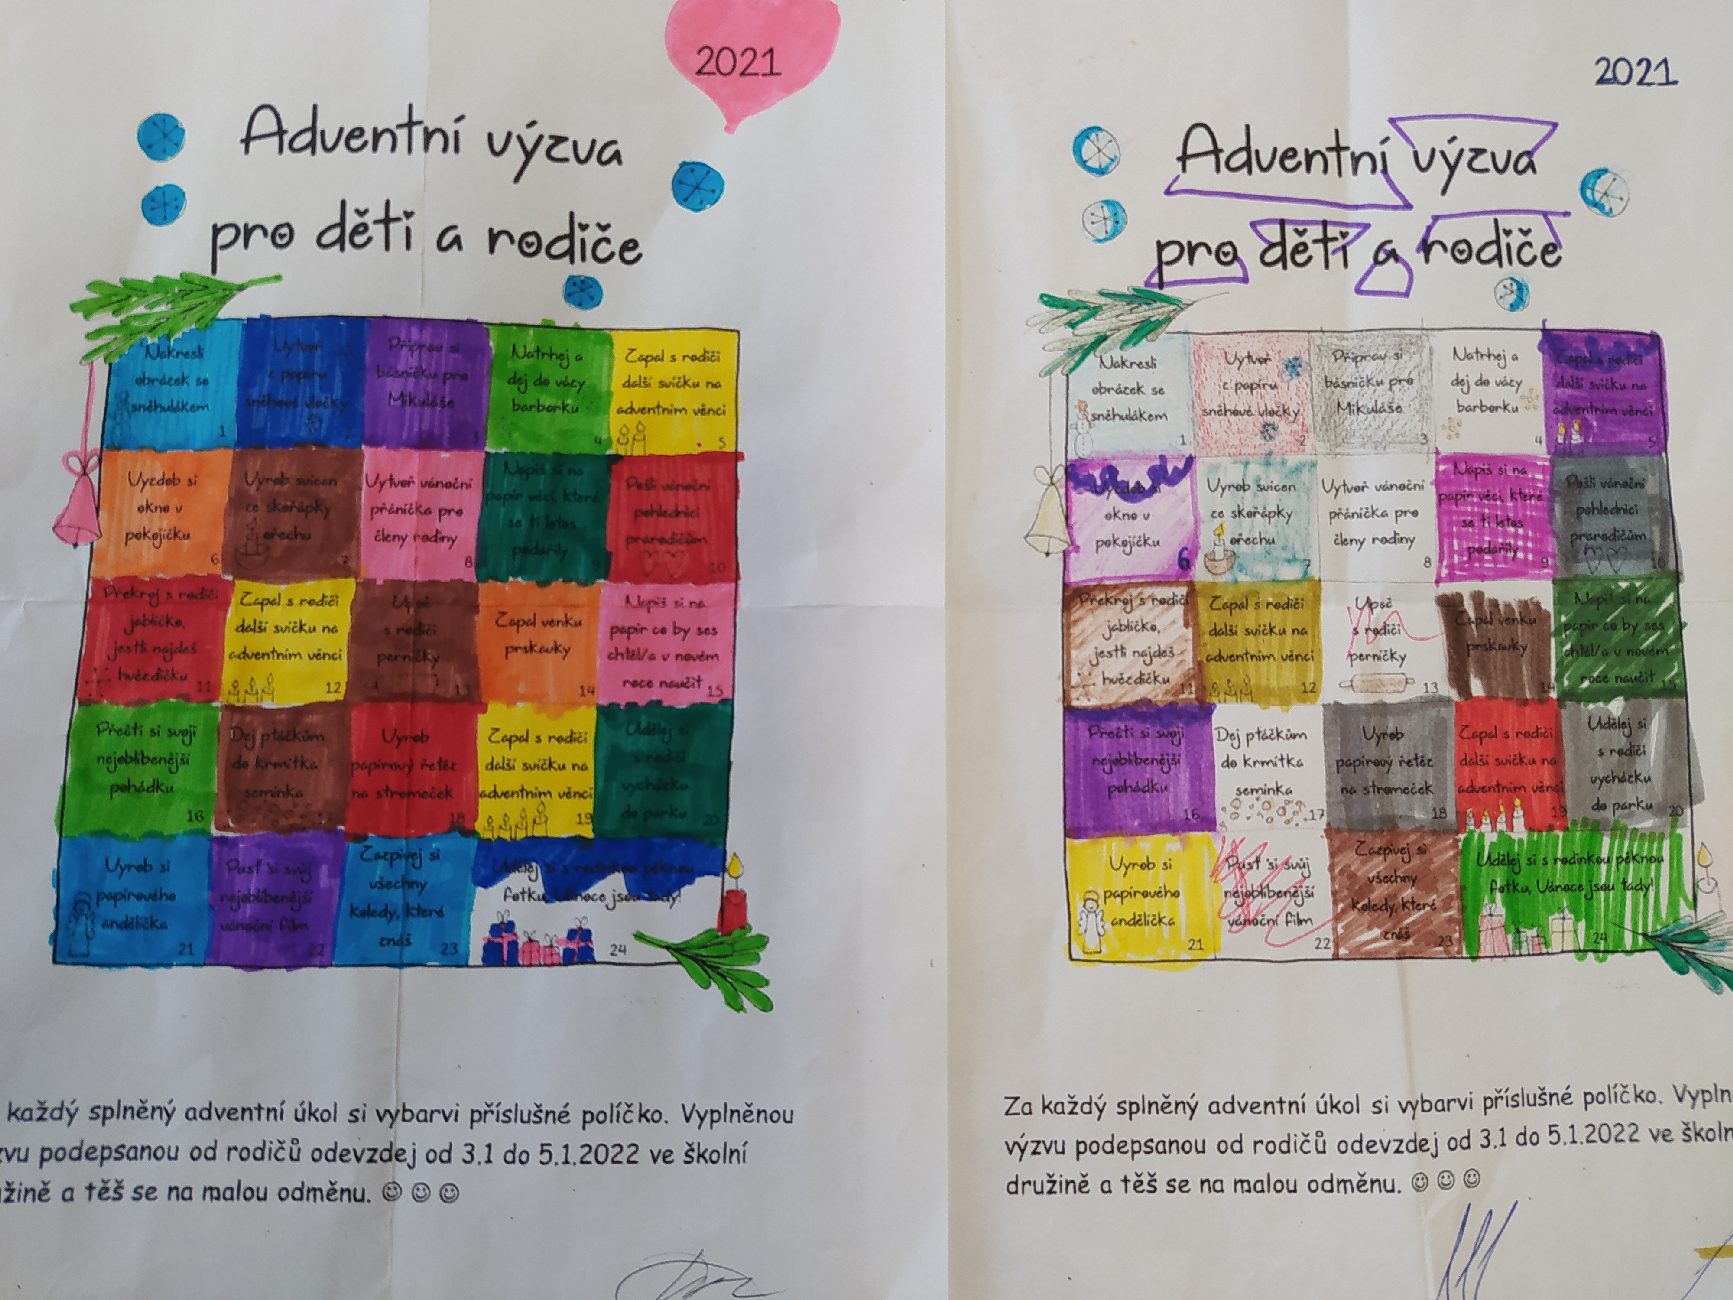 2021
Adventní výzva
pro děti a rodiče
Nakresli
obrázek se
sněhulákem
1
Vytvoř
z papíru
sněhové vločky
2
Připrav si
básničku pro
Mikuláše
3
Natrhej a
dej do vázy
barborku
4
Zapal s rodiči
další svíčku na
adventním věnci
5
Vyzdob si
okno v
pokojíčku
6
Vyrob svícen
ze skořápky
ořechu
7
Vytvoř vánoční
přáníčka pro
členy rodiny
8
Napiš si na
papír věci, které
se ti letos
podařily
9
Pošli vánoční
pohlednici
prarodičům
10
Překroj s rodiči
jablíčko,
jestli najdeš
hvězdičku
11
Zapal s rodiči
další svíčku na
adventním věnci
12
Upeč
s rodiči
perníčky
13
Zapal venku
prskavky
14
Napiš si na
papír co by ses
chtěl/a v novém
roce naučit
15
Přečti si svoji
nejoblíbenější
pohádku
16
Dej ptáčkům
do krmítka
semínka
17
Vyrob
papírový řetěz
na stromeček
18
Zapal s rodiči
další svíčku na
adventním věnci
19
Udělej si
s rodiči
vycházku
do parku
20
Vyrob si
papírového
andělíčka
21
Pusť si svůj
nejoblíbenější
vánoční film
22
Zazpívej si
všechny
koledy, které
znáš
23
Udělej si s rodinkou pěknou
fotku, Vánoce jsou tady!
24
každý splněný adventní úkol si vybarvi příslušné políčko. Vyplněnou
zvu podepsanou od rodičů odevzdej od 3.1 do 5.1.2022 ve školní
užině a těš se na malou odměnu. ☺ ☺ ☺
2021
Adventní výzva
pro děti a rodiče
Nakresli
obrázek se
sněhulákem
1
Vytvoř
z papíru
sněhové vločky
2
Připrav si
básničku pro
Mikuláše
3
Natrhej a
dej do vázy
barborku
4
Zapal s rodiči
další svíčku na
adventním věnci
5
Vyzdob si
okno v
pokojíčku
6
Vyrob svícen
ze skořápky
ořechu
7
Vytvoř vánoční
přáníčka pro
členy rodiny
8
Napiš si na
papír věci, které
se ti letos
podařily
9
Pošli vánoční
pohlednici
prarodičům
10
Překroj s rodiči
jablíčko,
jestli najdeš
hvězdičku
11
Zapal s rodiči
další svíčku na
adventním věnci
12
Upeč
s rodiči
perníčky
13
Zapal venku
prskavky
14
Napiš si na
papír co by ses
chtěl/a v novém
roce naučit
15
Přečti si svoji
nejoblíbenější
pohádku
16
Dej ptáčkům
do krmítka
semínka
17
Vyrob
papírový řetěz
na stromeček
18
Zapal s rodiči
další svíčku na
adventním věnci
19
Udělej si
s rodiči
vycházku
do parku
20
Vyrob si
papírového
andělíčka
21
Pusť si svůj
nejoblíbenější
vánoční film
22
Zazpívej si
všechny
koledy, které
znáš
23
Udělej si s rodinkou pěknou
fotku, Vánoce jsou tady!
24
Za každý splněný adventní úkol si vybarvi příslušné políčko. Vypln
výzvu podepsanou od rodičů odevzdej od 3.1 do 5.1.2022 ve školn
družině a těš se na malou odměnu. ☺ ☺ ☺